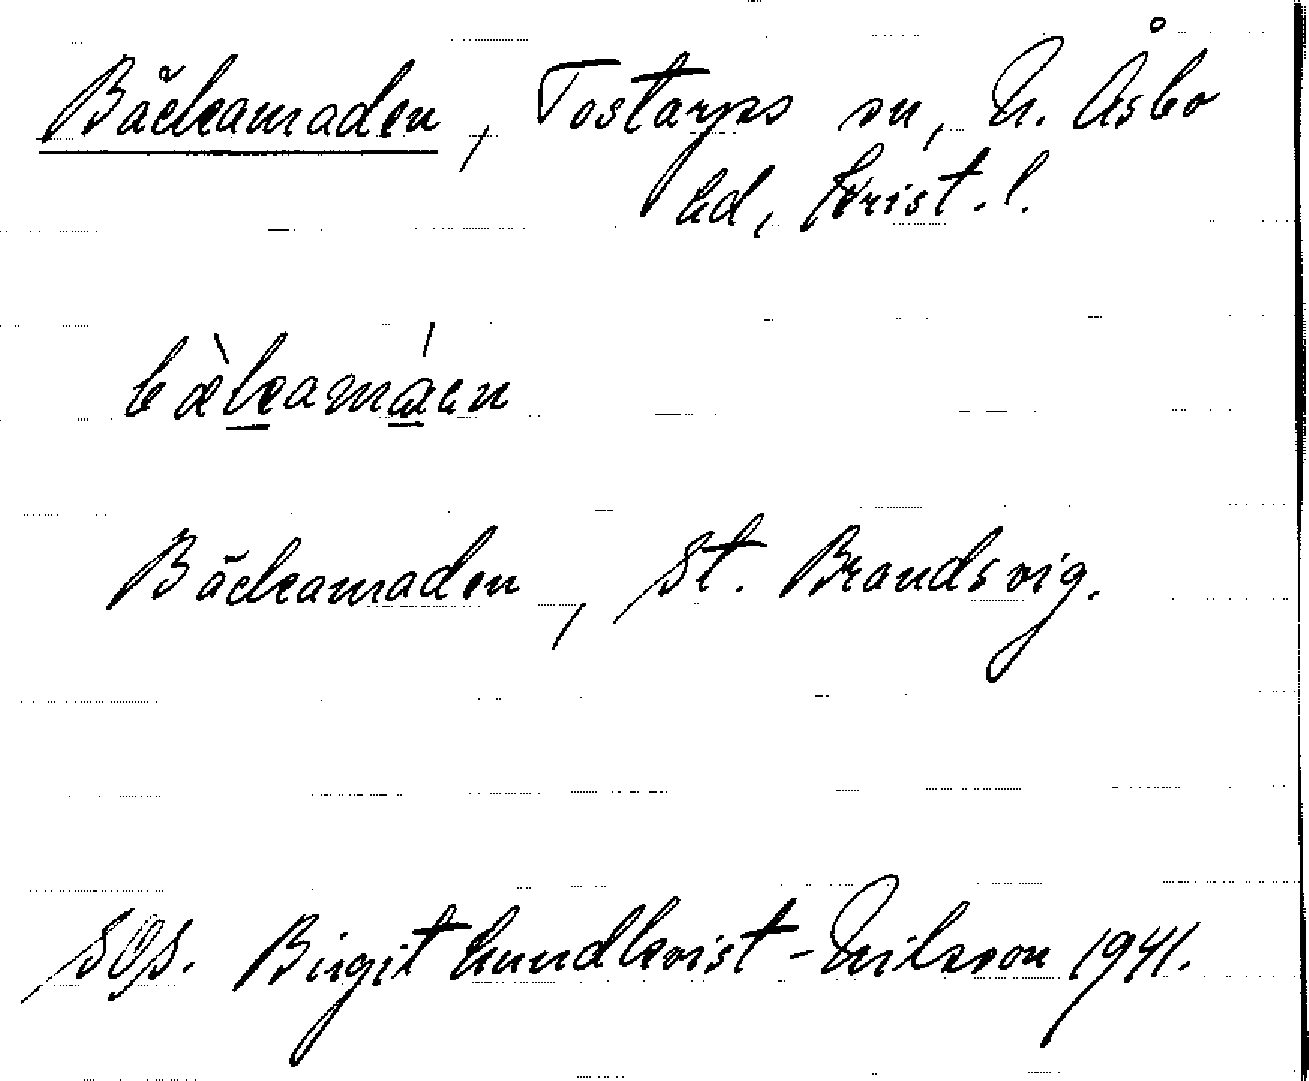 Bäckamaden, Tostarps sn, N. Åsbo
hd, Krist. l.
bækamáen
Bäckamaden, St. Brandsvig.
SOS. Birgit Lundkvist-Nilsson 1941.